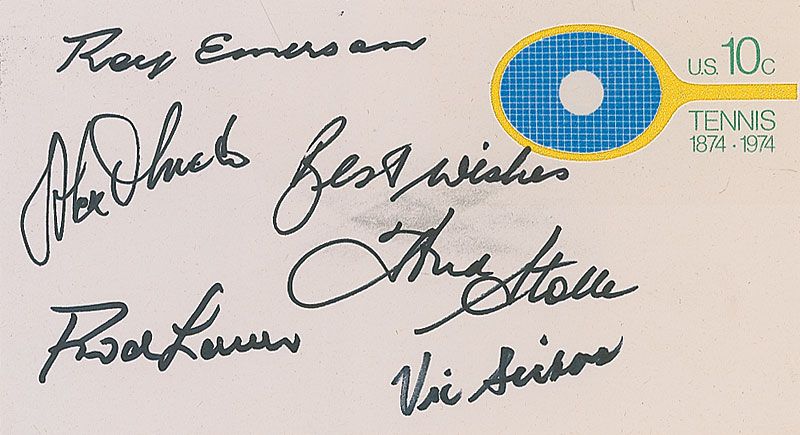 Roy Emerson
U.S. 10c
TENNIS
1874·1974
Alex Olmedo
Best wishes
Fred Stolle
Rod Laver
Vic Seixas